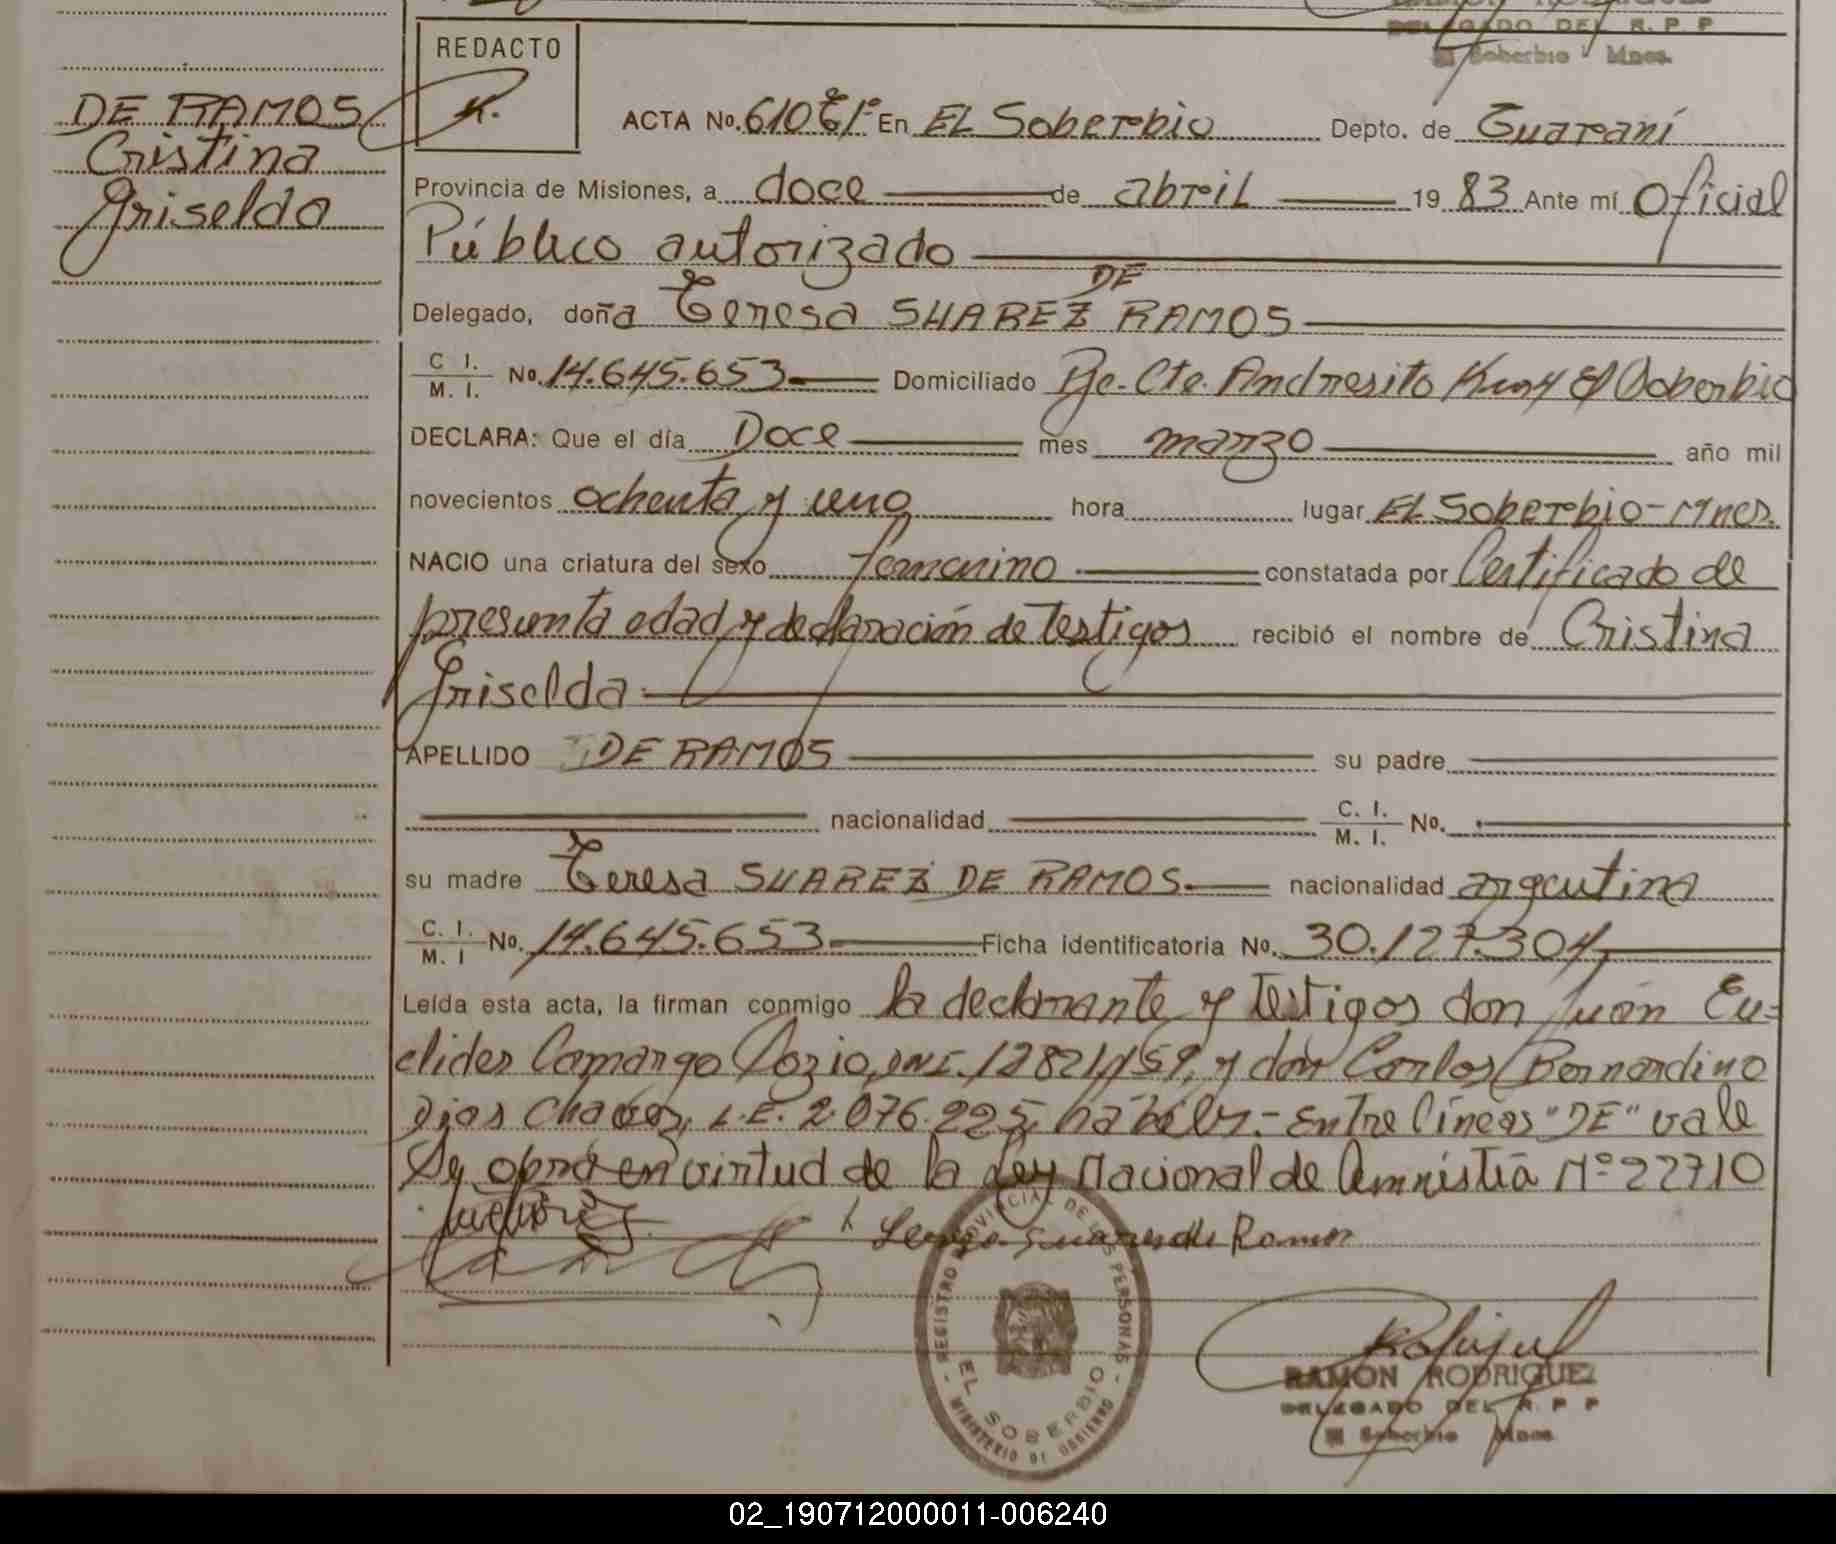 DELEGADO DEL R. P. P
El Soberbio Mnes.
REDACTO
DE RAMOS
Cristina
Griselda
ACTA No. 610 Tº 1º En EL Soberbio Depto. de Guaraní
Provincia de Misiones, a doce de abril 19 83 Ante mí Oficial
Público autorizado
DE
Delegado, doña Teresa SUAREZ RAMOS
C I.
M. I. No. 14.645.653 Domiciliado Pje. Cte. Andresito Km 4 El Soberbio
DECLARA: Que el día Doce mes marzo año mil
novecientos ochenta y uno hora lugar EL Soberbio-Mnes.
NACIO una criatura del sexo femenino constatada por Certificado de
presunta edad y declaración de Testigos recibió el nombre de Cristina
Griselda
APELLIDO DE RAMOS su padre
nacionalidad C. I.
M. I. No.
su madre Teresa SUAREZ DE RAMOS. nacionalidad argentina
C. I.
M. I No. 14.645.653 Ficha identificatoria No. 30.127.304
Leída esta acta, la firman conmigo la declarante y Testigos don Juan Eu=
clides Camargo DNI. y don Carlos Bernardino
Dias Chavez, L.E. 2.076.225, hábiles.- Entre líneas "DE" vale
Se obra en virtud de la Ley Nacional de Amnistía Nº 22710
Suarez de Ramos
REGISTRO PROVINCIAL DE LAS PERSONAS
EL SOBERBIO
MINISTERIO DE GOBIERNO
RAMON RODRIGUEZ
DELEGADO DEL R. P. P
El Soberbio Mnes.
02_190712000011-006240